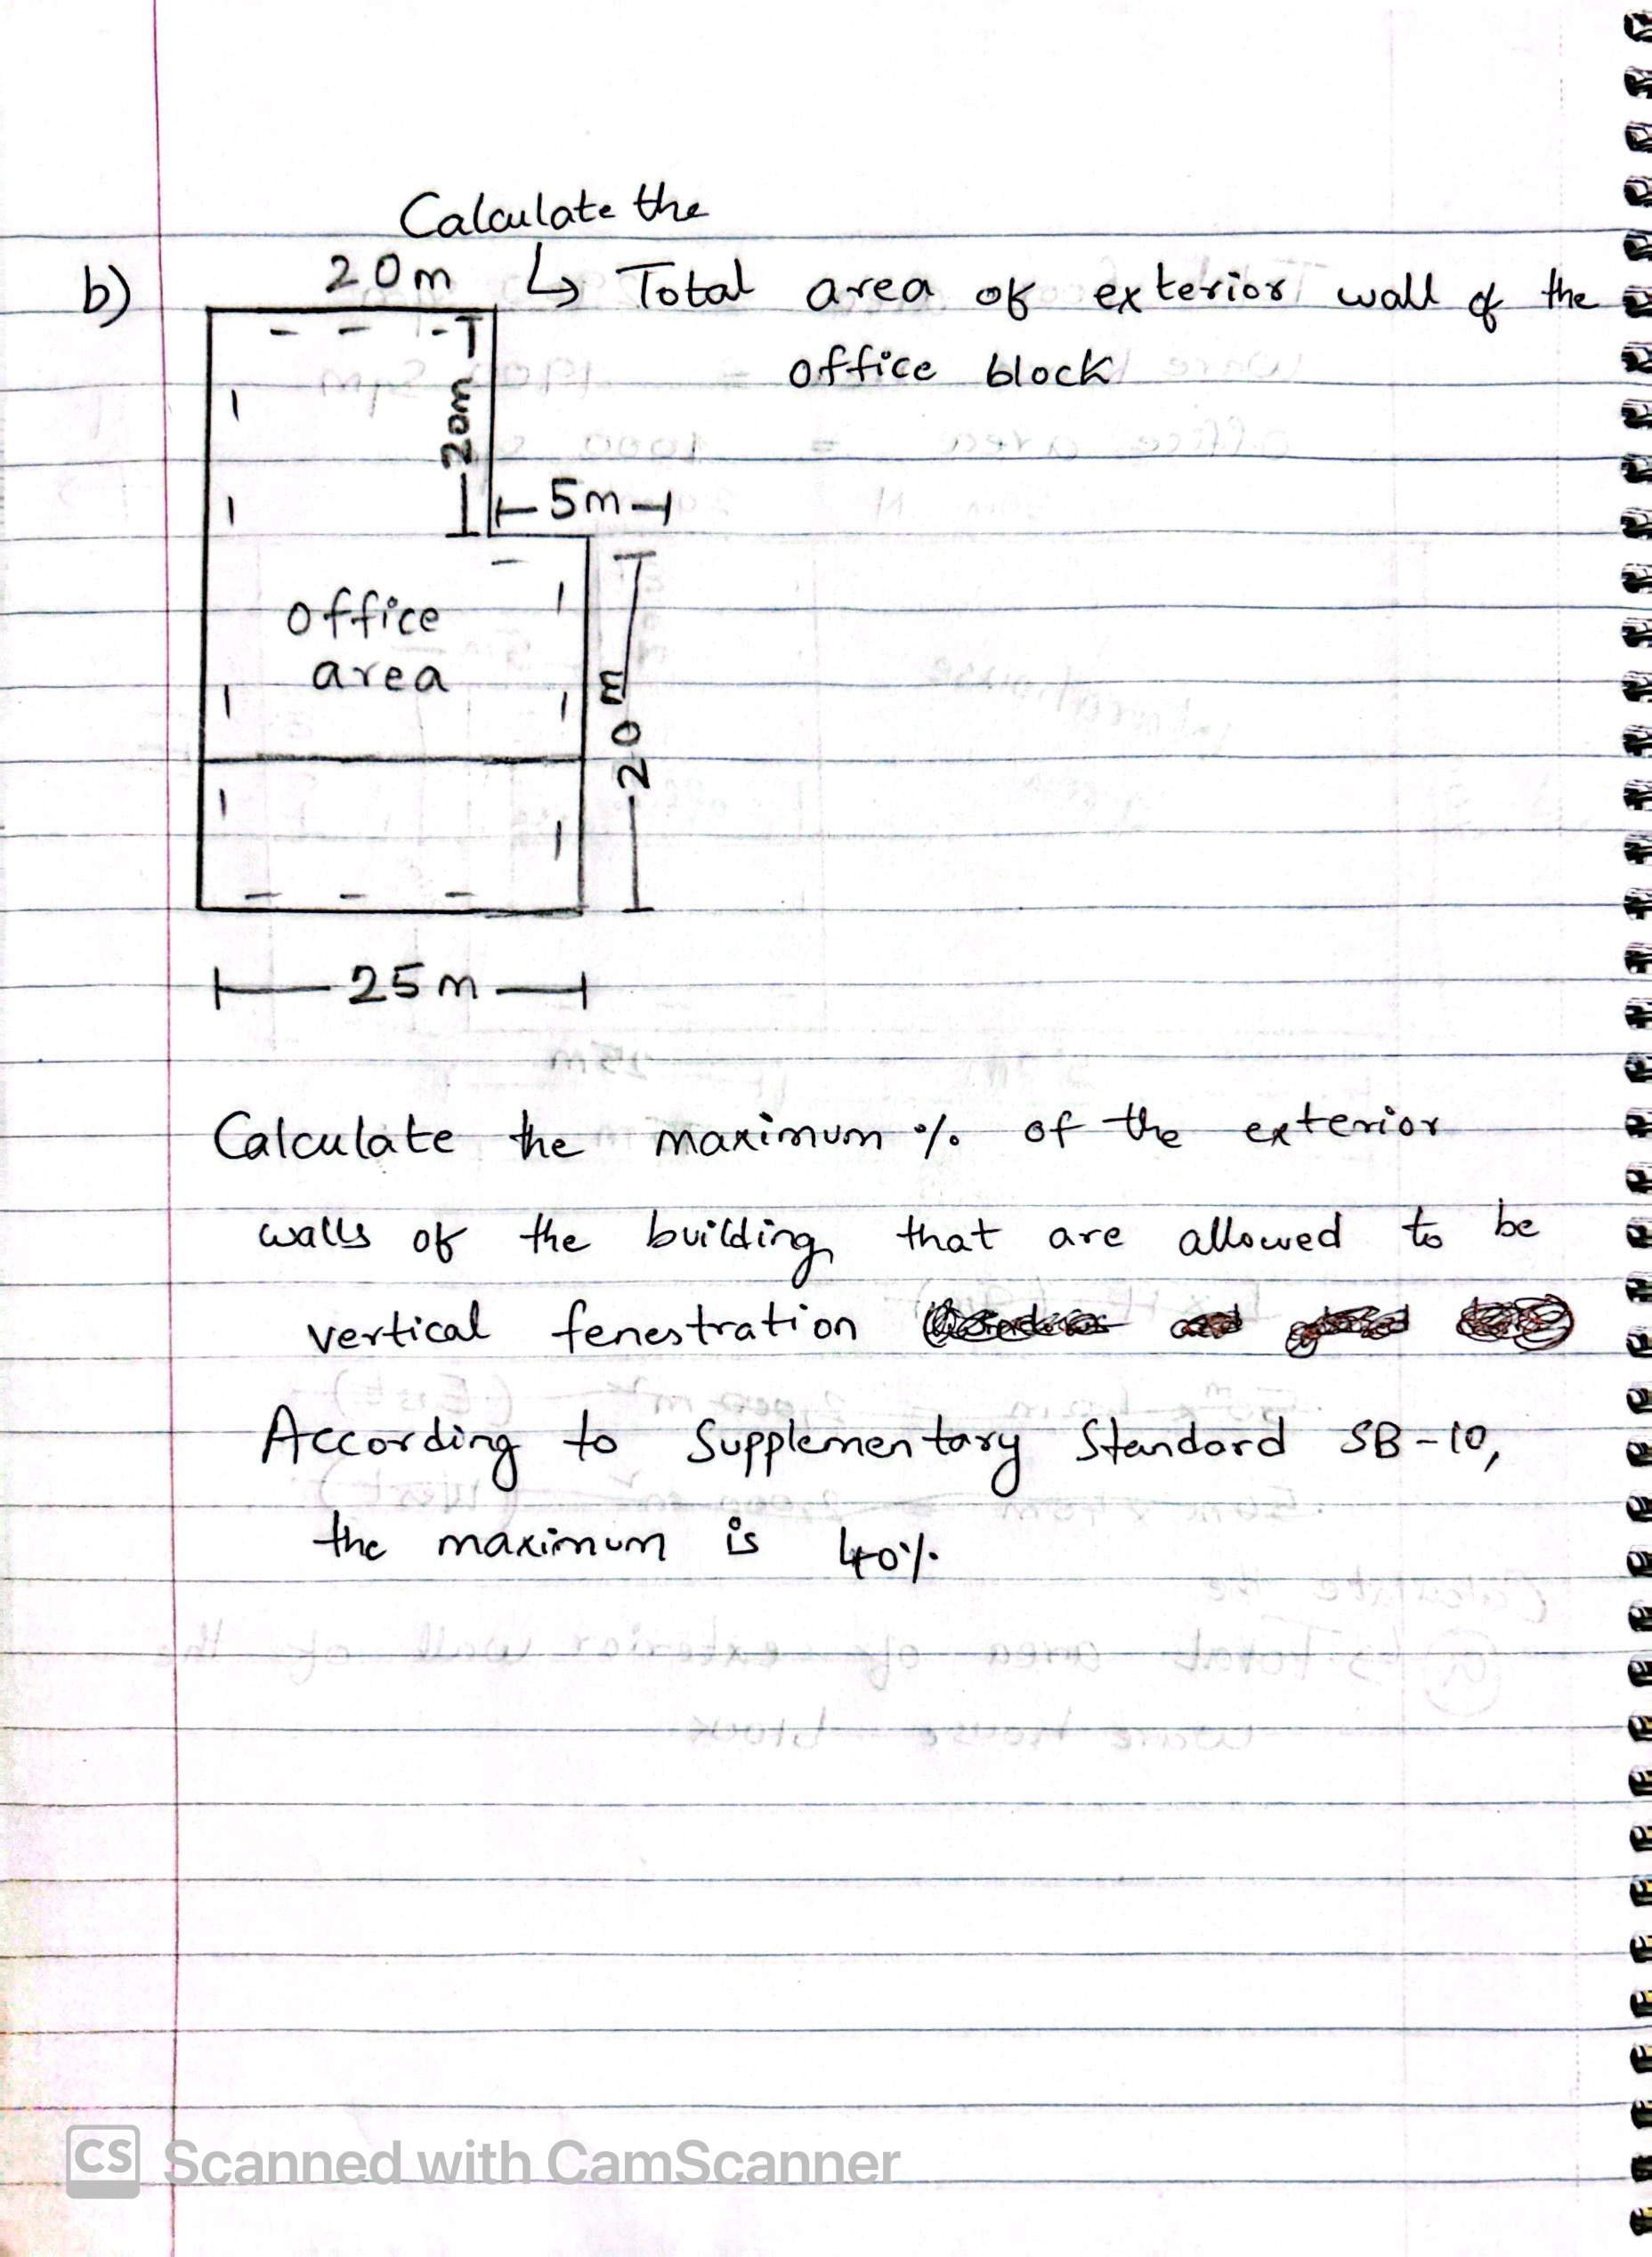 Calculate the
b) 20m ↳ Total area of exterior wall of the
office block
20m
5m
office
area
20m
25m
Calculate the maximum % of the exterior
walls of the building that are allowed to be
vertical fenestration
According to Supplementary Standard SB-10,
the maximum is 40%
CS Scanned with CamScanner